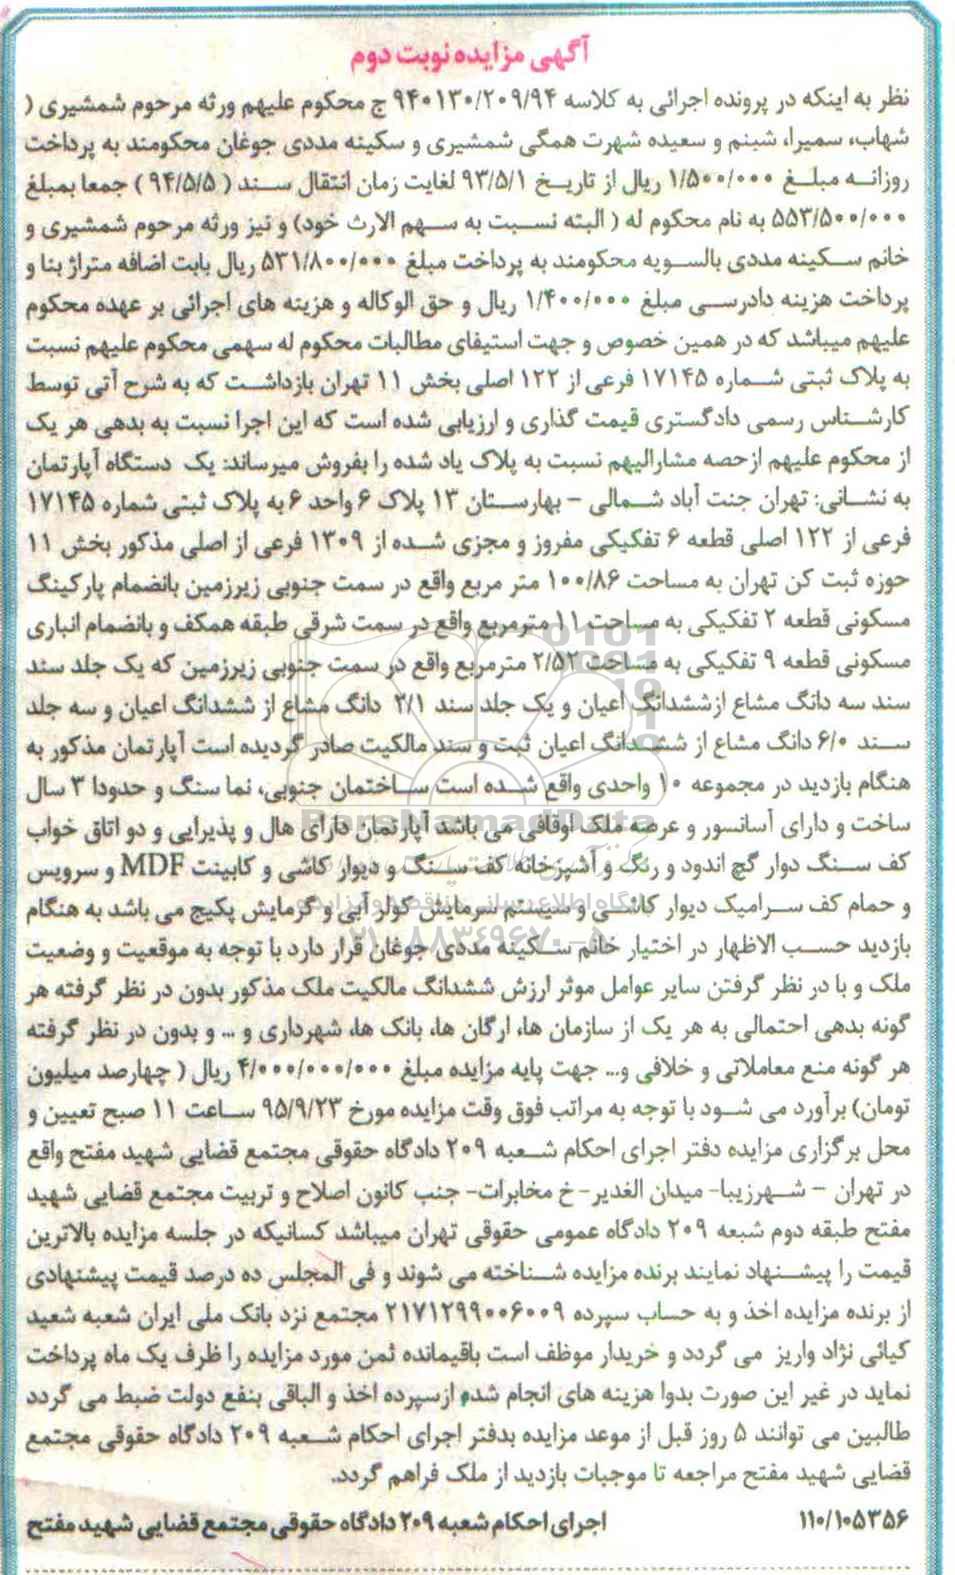 آگهی مزایده نوبت دوم
نظر به اینکه در پرونده اجرائی به کلاسه ۹۴۰۱۳۰/۲۰۹/۹۴ ج محکوم علیهم ورثه مرحوم شمشیری (
شهاب، سمیرا، شبنم و سعیده شهرت همگی شمشیری و سکینه مددی جوغان محکومند به پرداخت
روزانه مبلغ ۱/۵۰۰/۰۰۰ ریال از تاریخ ۹۳/۵/۱ لغایت زمان انتقال سند ( ۹۴/۵/۵ ) جمعا بمبلغ
۵۵۳/۵۰۰/۰۰۰ به نام محکوم له ( البته نسبت به سهم الارث خود) و نیز ورثه مرحوم شمشیری و
خانم سکینه مددی بالسویه محکومند به پرداخت مبلغ ۵۳۱/۸۰۰/۰۰۰ ریال بابت اضافه متراژ بنا و
پرداخت هزینه دادرسی مبلغ ۱/۴۰۰/۰۰۰ ریال و حق الوکاله و هزینه های اجرائی بر عهده محکوم
علیهم میباشد که در همین خصوص و جهت استیفای مطالبات محکوم له سهمی محکوم علیهم نسبت
به پلاک ثبتی شماره ۱۷۱۴۵ فرعی از ۱۲۲ اصلی بخش ۱۱ تهران بازداشت که به شرح آتی توسط
کارشناس رسمی دادگستری قیمت گذاری و ارزیابی شده است که این اجرا نسبت به بدهی هر یک
از محکوم علیهم ازحصه مشارالیهم نسبت به پلاک یاد شده را بفروش میرساند: یک دستگاه آپارتمان
به نشانی: تهران جنت آباد شمالی – بهارستان ۱۳ پلاک ۶ واحد ۶ به پلاک ثبتی شماره ۱۷۱۴۵
فرعی از ۱۲۲ اصلی قطعه ۶ تفکیکی مفروز و مجزی شده از ۱۳۰۹ فرعی از اصلی مذکور بخش ۱۱
حوزه ثبت کن تهران به مساحت ۱۰۰/۸۶ متر مربع واقع در سمت جنوبی زیرزمین بانضمام پارکینگ
مسکونی قطعه ۲ تفکیکی به مساحت ۱۱ مترمربع واقع در سمت شرقی طبقه همکف و بانضمام انباری
مسکونی قطعه ۹ تفکیکی به مساحت ۲/۵۲ مترمربع واقع در سمت جنوبی زیرزمین که یک جلد سند
سند سه دانگ مشاع ازششدانگ اعیان و یک جلد سند ۲/۱ دانگ مشاع از ششدانگ اعیان و سه جلد
سند ۶/۰ دانگ مشاع از ششدانگ اعیان ثبت و سند مالکیت صادر گردیده است آپارتمان مذکور به
هنگام بازدید در مجموعه ۱۰ واحدی واقع شده است ساختمان جنوبی، نما سنگ و حدودا ۳ سال
ساخت و دارای آسانسور و عرصه ملک اوقافی می باشد آپارتمان دارای هال و پذیرایی و دو اتاق خواب
کف سنگ دوار گچ اندود و رنگ و آشپزخانه کف سنگ و دیوار کاشی و کابینت MDF و سرویس
و حمام کف سرامیک دیوار کاشی و سیستم سرمایش کولر آبی و گرمایش پکیج می باشد به هنگام
بازدید حسب الاظهار در اختیار خانم سکینه مددی جوغان قرار دارد با توجه به موقعیت و وضعیت
ملک و با در نظر گرفتن سایر عوامل موثر ارزش ششدانگ مالکیت ملک مذکور بدون در نظر گرفته هر
گونه بدهی احتمالی به هر یک از سازمان ها، ارگان ها، بانک ها، شهرداری و ... و بدون در نظر گرفته
هر گونه منع معاملاتی و خلافی و... جهت پایه مزایده مبلغ ۴/۰۰۰/۰۰۰/۰۰۰ ریال ( چهارصد میلیون
تومان) برآورد می شود با توجه به مراتب فوق وقت مزایده مورخ ۹۵/۹/۲۳ ساعت ۱۱ صبح تعیین و
محل برگزاری مزایده دفتر اجرای احکام شعبه ۲۰۹ دادگاه حقوقی مجتمع قضایی شهید مفتح واقع
در تهران – شهرزیبا- میدان الغدیر- خ مخابرات- جنب کانون اصلاح و تربیت مجتمع قضایی شهید
مفتح طبقه دوم شبعه ۲۰۹ دادگاه عمومی حقوقی تهران میباشد کسانیکه در جلسه مزایده بالاترین
قیمت را پیشنهاد نمایند برنده مزایده شناخته می شوند و فی المجلس ده درصد قیمت پیشنهادی
از برنده مزایده اخذ و به حساب سپرده ۲۱۷۱۲۹۹۰۰۶۰۰۹ مجتمع نزد بانک ملی ایران شعبه شعید
کیائی نژاد واریز می گردد و خریدار موظف است باقیمانده ثمن مورد مزایده را ظرف یک ماه پرداخت
نماید در غیر این صورت بدوا هزینه های انجام شده ازسپرده اخذ و الباقی بنفع دولت ضبط می گردد
طالبین می توانند ۵ روز قبل از موعد مزایده بدفتر اجرای احکام شعبه ۲۰۹ دادگاه حقوقی مجتمع
قضایی شهید مفتح مراجعه تا موجبات بازدید از ملک فراهم گردد.
۱۱۰/۱۰۵۳۵۶ اجرای احکام شعبه ۲۰۹ دادگاه حقوقی مجتمع قضایی شهید مفتح
ParsNamadData